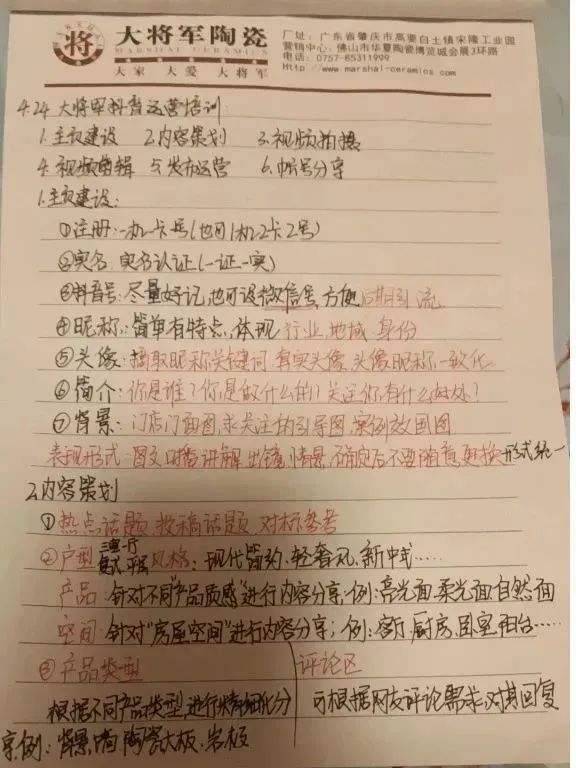 将
大将军陶瓷
MARSHAL CERAMICS
大家 大爱 大将军
厂址:广东省肇庆市高要白土镇宋隆工业园
营销中心:佛山市华夏陶瓷博览城会展3环路
电话:0757-85311999
Http://www.marshal-ceramics.com
4.24 大将军抖音运营培训
1.主页建设 2.内容策划 3.视频拍摄
4.视频剪辑 5.发布运营 6.帐号分享
1.主页建设:
①注册:一机一卡一号(也可1机2卡2号)
②实名:实名认证(一证一实)
③抖音号:尽量好记,也可设微信号,方便后期引流
④昵称:简单有特点,体现行业,地域,身份
⑤头像:摘取昵称关键词,真实头像,头像昵称一致化
⑥简介:你是谁?你是做什么的?关注你有什么好处?
⑦背景:门店门面图,求关注的引导图,案例效果图
表现形式:图文,口播,讲解,出镜,情景,确定后不要随意更换 形式统一
2.内容策划
①热点话题,投稿话题,对标参考
②户型 三室一厅 复式,平层 风格:现代简约、轻奢风、新中式……
产品:针对不同“产品质感”进行内容分享;例:亮光面,柔光面,自然面
空间:针对“房屋空间”进行内容分享;例:客厅,厨房,卧室,阳台……
③产品类型 评论区
根据不同产品类型,进行精细化分享 可根据网友评论需求,对其回复
例:背景墙,陶瓷大板、岩板